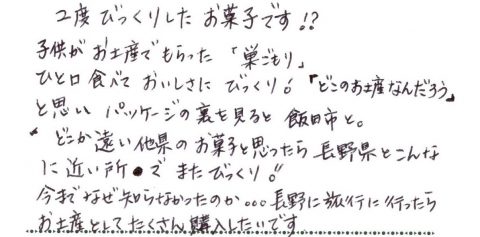 2度びっくりしたお菓子です!?
子供がお土産でもらった「巣ごもり」
ひと口食べておいしさにびっくり!「どこのお土産なんだろう」
と思いパッケージの裏を見ると飯田市と。
どこか遠い他県のお菓子と思ったら長野県とこんな
に近い所でまたびっくり!!
今までなぜ知らなかったのか...長野に旅行に行ったら
お土産としてたくさん購入したいです